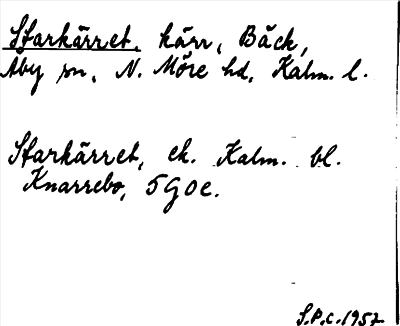 Starkärret, kärr, Bäck,
Åby sn, N. Möre hd, Kalm. l.
Starkärret, ek. Kalm. bl.
Knarrebo, 5G0e.
S.P.C. 1952